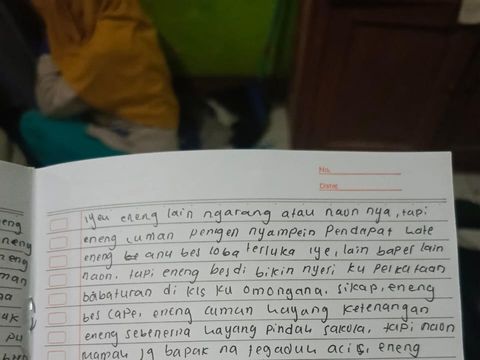 No.
Date
iyeu eneng lain ngarang atau naon nya, tapi
eneng cuman pengen nyampein Pendapat
eneng anu bes loba terluka iye, lain baper lain
naon. tapi eneng bes di bikin nyeri ku perkataan
babaturan di kls ku omongana. sikap, eneng
bes cape, eneng cuman hayang ketenangan
eneng sebenerna hayang pindah sakola. tapi naon
mamah jg bapak na eneng